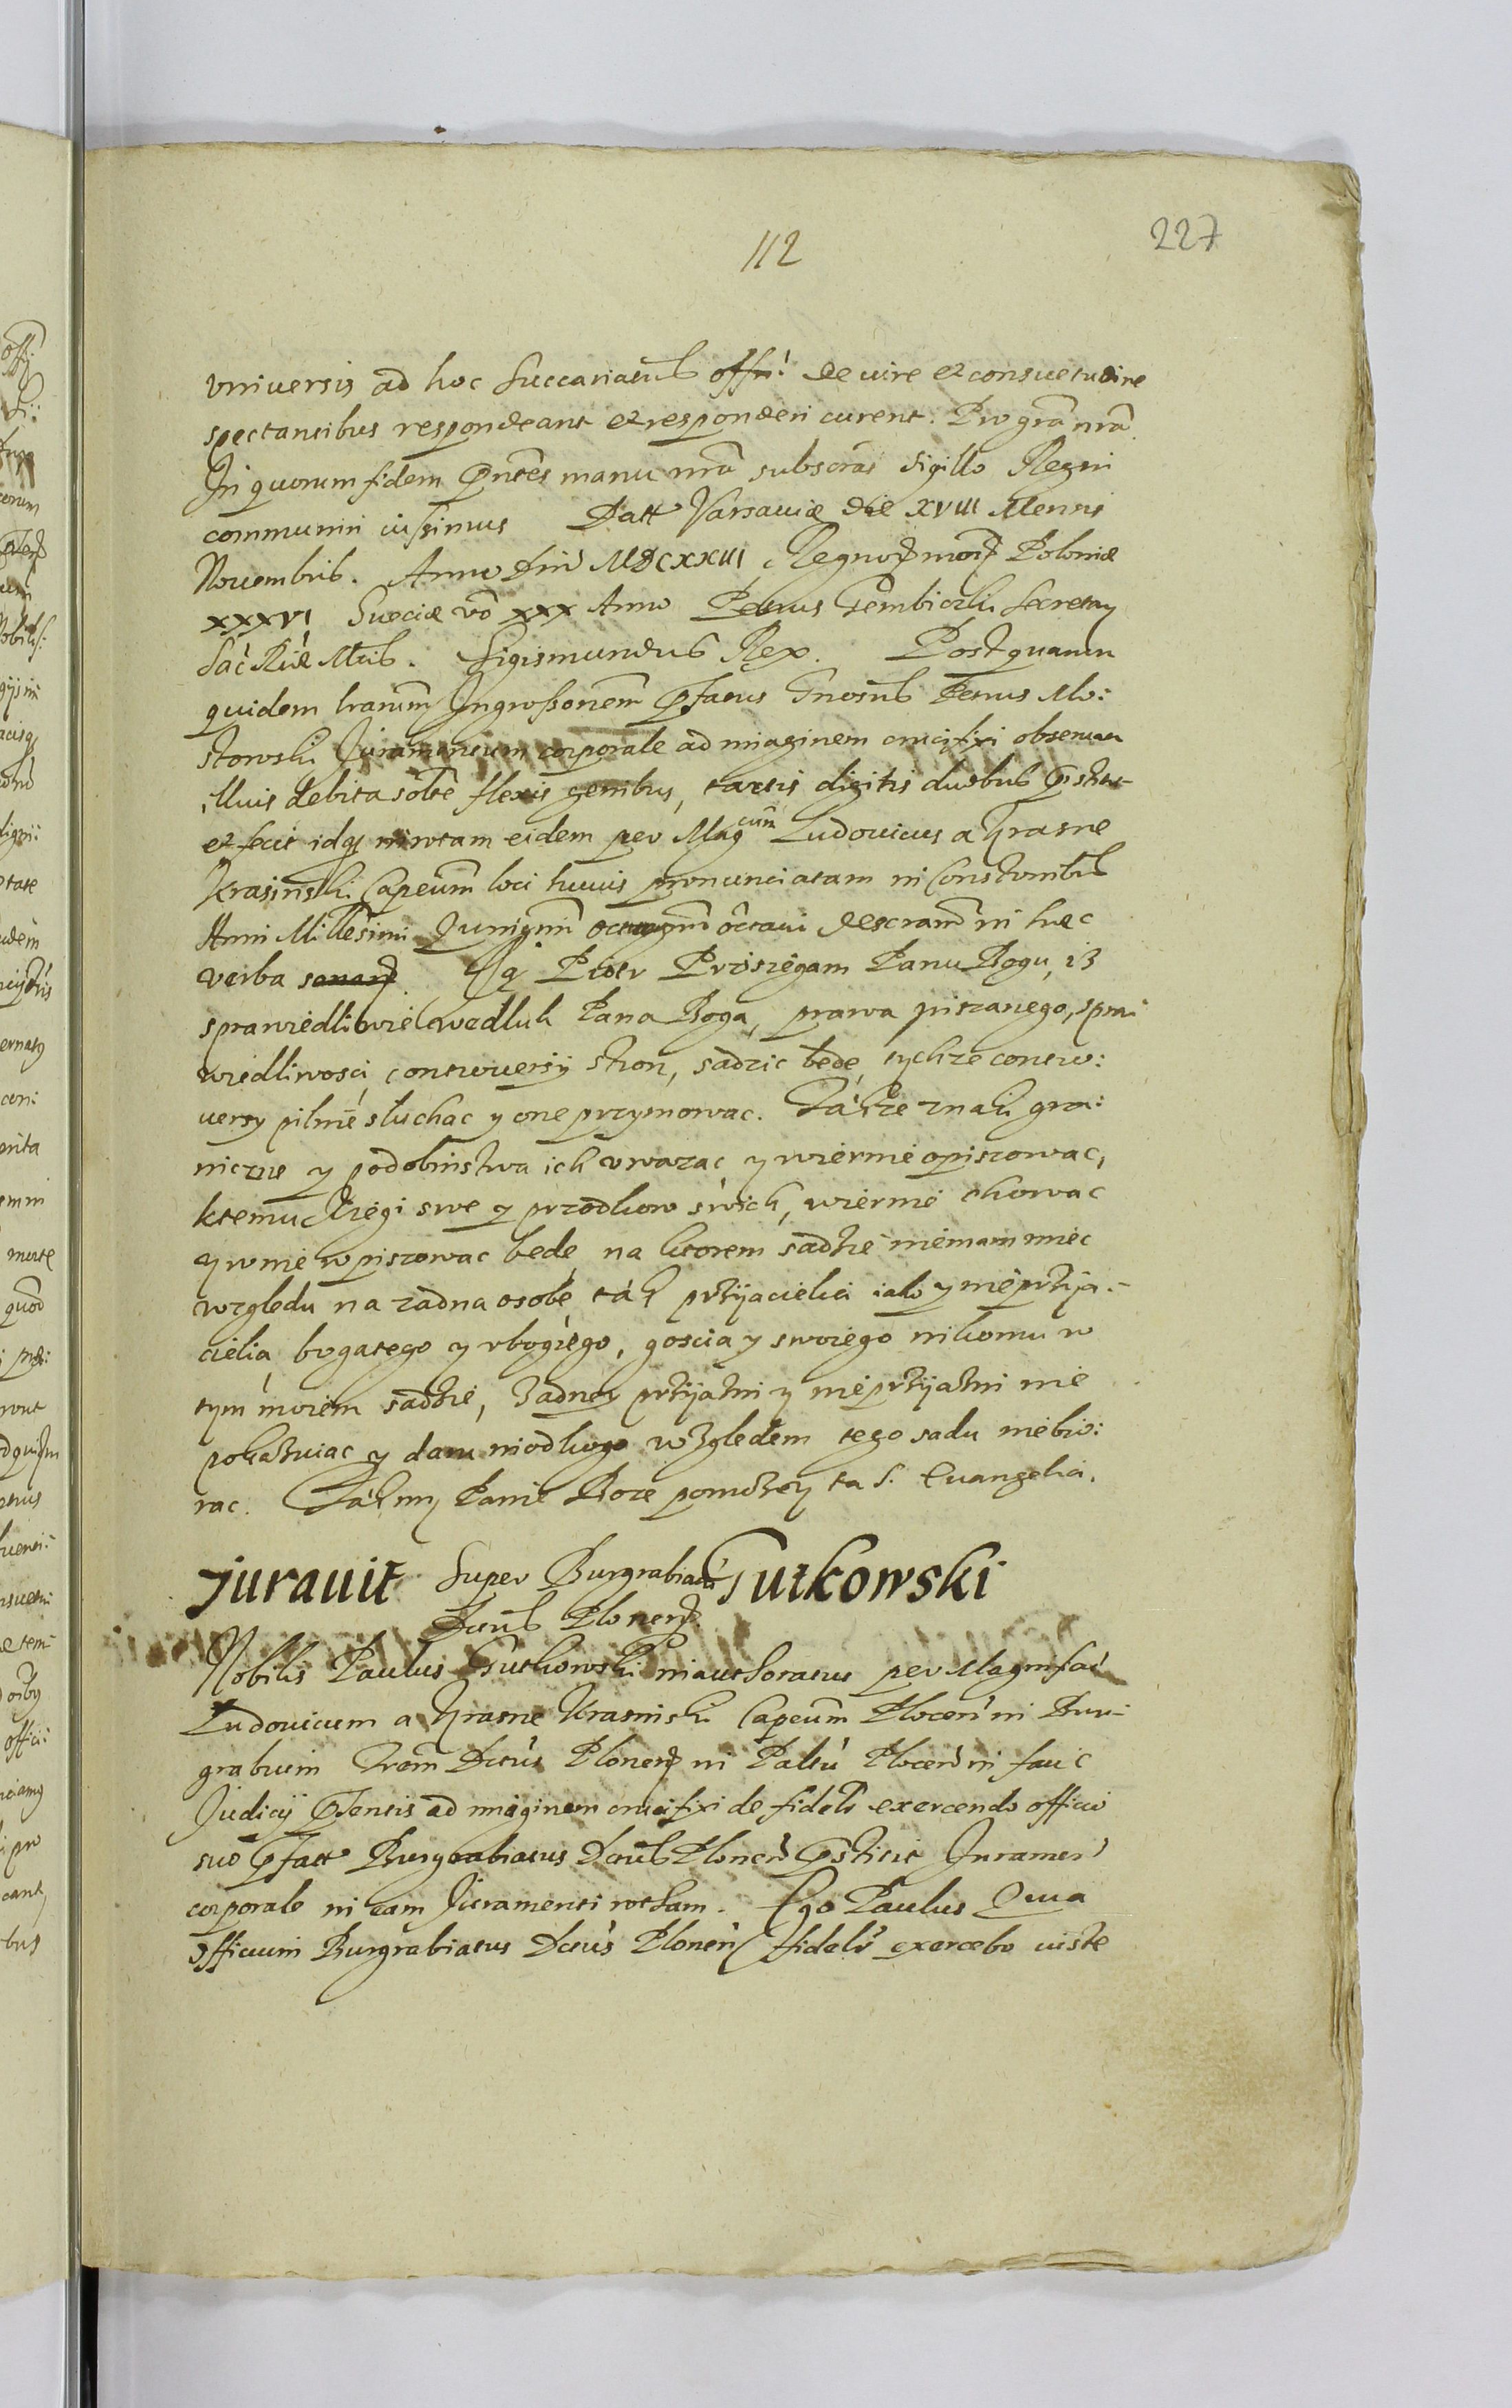 112
227
vniversis ad hoc Succariatus offi: de iure et consuetudine
spectantibus respondeant et responderi curent. Pro grã nrã
In quorum fidem pñtes manu nrã subscrãs sigillo Regni
communiri iussimus Datt Varsaviæ die XVIII Mensis
Novembris. Anno Dñi MDCXXIII Regnor mor Poloniæ
XXXVI Sueciæ vo XXX Anno Petrus Gembiczki Secretary
Sac Riæ Mtis. Sigismundus Rex. Postquam
quidem lrarum Ingrossonem pfatus Gnosus Petrus Mło:
stowski Juramentum corporale ad imaginem crucifixi observan
illius debita solte flexis genibus, tactis digitis duobus pstit
et fecit idq iuxtam eidem per Mag cum Ludovicus a Krasne
Krasinski Capeum loci huius pronunciatam in Constonibus
Anni Millesimi Quingmi octuagmi octavi descram in hæc
verba sonan. Ja Piotr Przisięgam Panu Bogu, iz
sprawiedliwie wedluk Pana Boga, prawa pisanego, spra:
wiedliwosci, controversij stron, sadzic bede, tychze contro:
versy pilnie słuchac y one przymowac. Także znaki gra:
niczne y podobinstwa ich vwazac y wiernie opisowac,
ktemu Xiegi swe y przodkow swich, wiernie chowac
y w nie wpisowac bede, na ktorem sadzie niemam miec
wzgledu na zadna osobe, tak przijaciela iako y nieprzija:
ciela, bogatego y vbogiego, goscia y swoiego nikomu w
tym moiem sadzie, zadney przijazni y nieprzijazni nie
pokazuiac y daru niodkogo wzgledem tego sadu niebio:
rac. Tak my Panie Boze pomozy ta S. Evangelia.
Juravit Super Burgrabiatu Gutkowski
Dctus Plonen
Nobilis Paulus Gutkowski inauthoratus per Magnificu
Ludovicum a Krasne Krasinski Capeum Plocen in Bur:
grabium Trem Dctus Plonen in Paltu Plocen in facie
Judicij psentis ad imaginem crucifixi de fideli exercendo officio
suo pfatt Burgrabiatus Dctus Plonen pstitit Juramen
corporale in eam Juramenti rotham. Ego Paulus Qua
officium Burgrabiatus Dctus Plonen fideli exercebo iuste